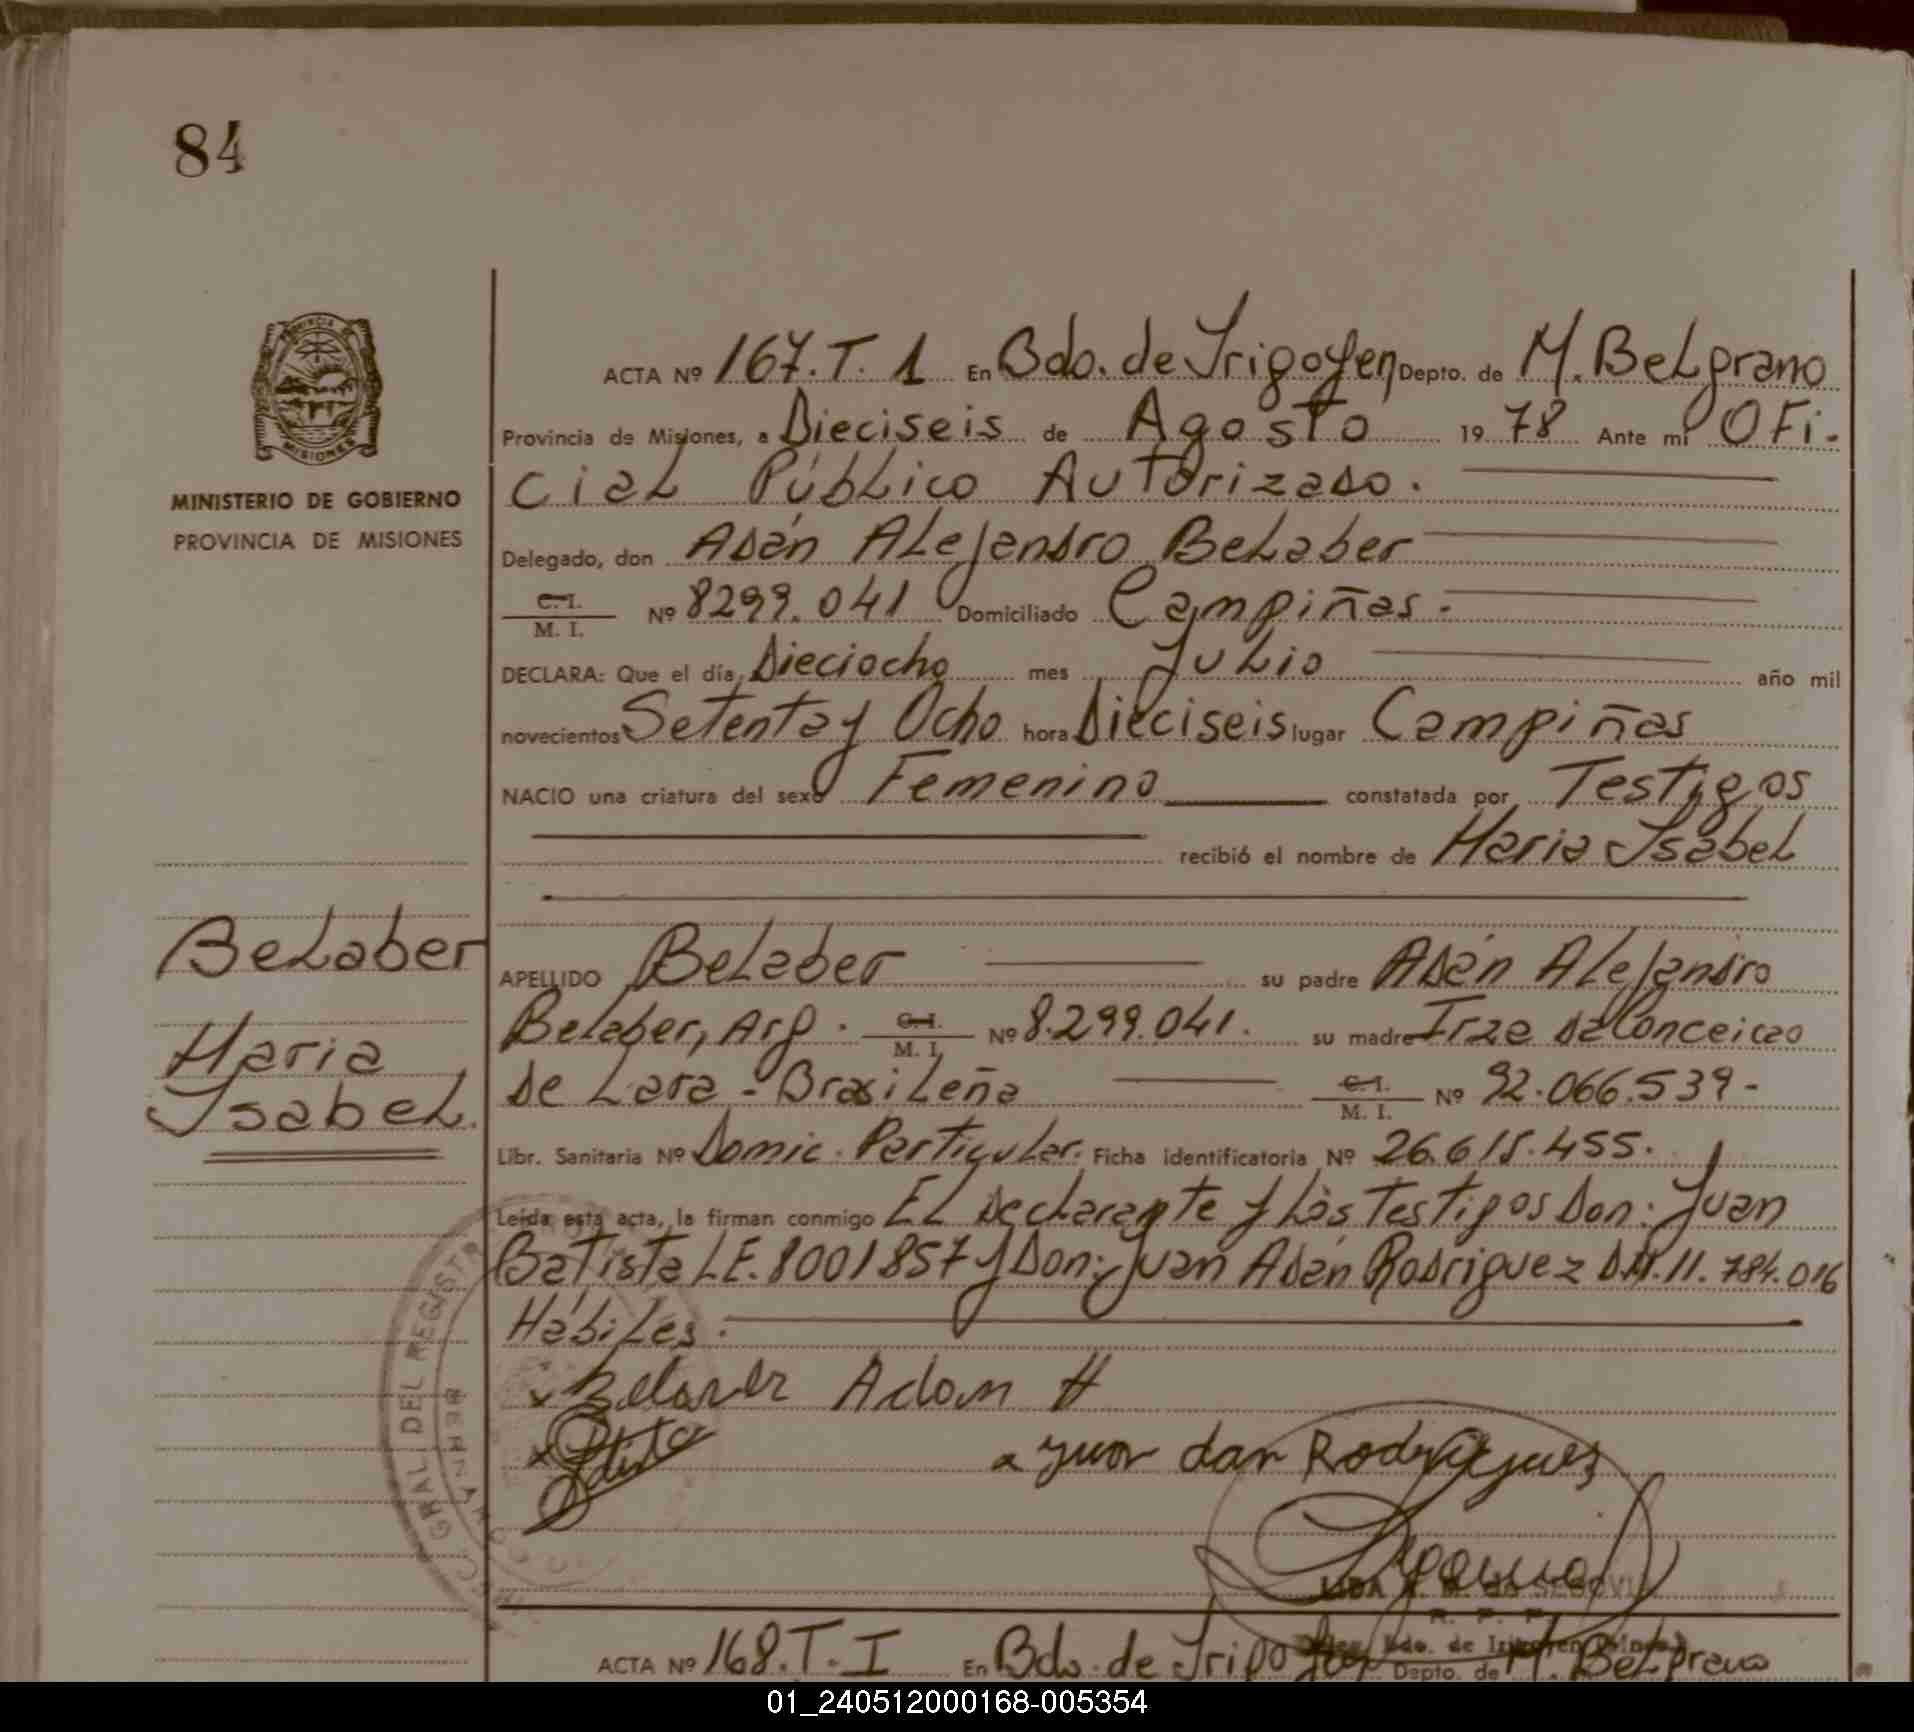 84
PROVINCIA DE
MISIONES
MINISTERIO DE GOBIERNO
PROVINCIA DE MISIONES
Belaber
Maria
Isabel.
ACTA Nº 167.T. 1 En Bdo. de Irigoyen Depto. de M. Belgrano
Provincia de Misiones, a Dieciseis de Agosto 1978 Ante mi Ofi-
cial Público Autorizado.
Delegado, don Adán Alejandro Belaber
C. I.
M. I. Nº 8299.041 Domiciliado Campiñas.
DECLARA: Que el día Dieciocho mes Julio año mil
novecientos Setenta y Ocho hora Dieciseis lugar Campiñas
NACIO una criatura del sexo Femenino constatada por Testigos
recibió el nombre de Maria Isabel
APELLIDO Belaber su padre Adán Alejandro
Belaber, Arg. C. I. M. I. Nº 8.299.041. su madre Irze da Conceicao
de Lara - Brasileña C. I. M. I. Nº 92.066.539-
Libr. Sanitaria Nº Domic. Particular. Ficha identificatoria Nº 26.615.455.
Leída esta acta, la firman conmigo El declarante y los Testigos Don: Juan
Batista L.E. 8001857 y Don: Juan Adán Rodriguez D.N.I. 11.784.016
Hábiles.
x Belaver Adam A
x
x Juan dan Rodrigues
GRAL DEL REGISTR
LIDA de SEGOVIA
R. P. P.
Bdo. de Irigoyen
ACTA Nº 168.T.I En Bdo. de Irigoyen Depto. de M. Belgrano
01_240512000168-005354